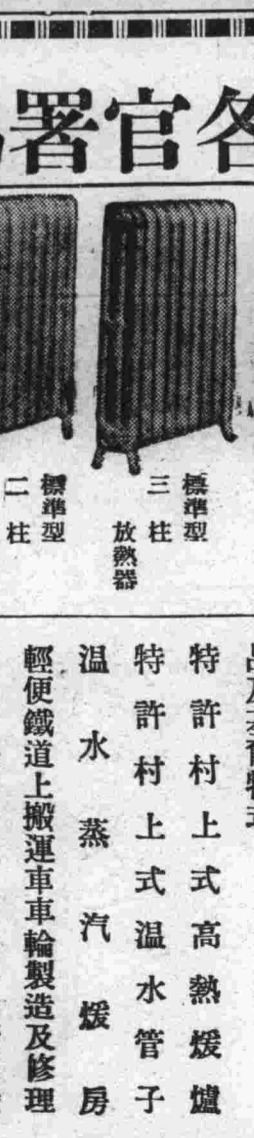 各官署
標準型
三柱
放熱器
標準型
二柱
特許村上式高熱煖爐
特許村上式温水管子
温水蒸汽煖房
輕便鐵道上搬運車車輪製造及修理